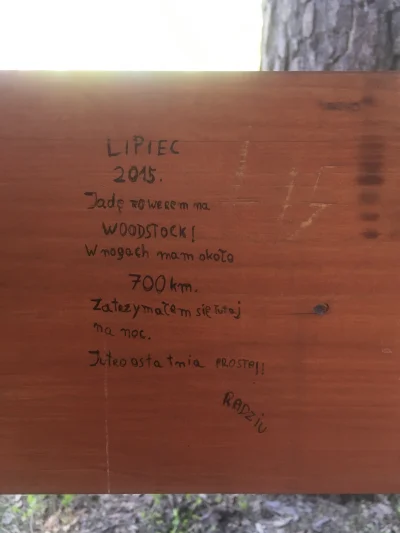 LIPIEC
2015.
Jadę rowerem na
WOODSTOCK!
W nogach mam około
700 km.
Zatrzymałem się tutaj
na noc.
Jutro ostatnia PROSTA!!
RADZIU